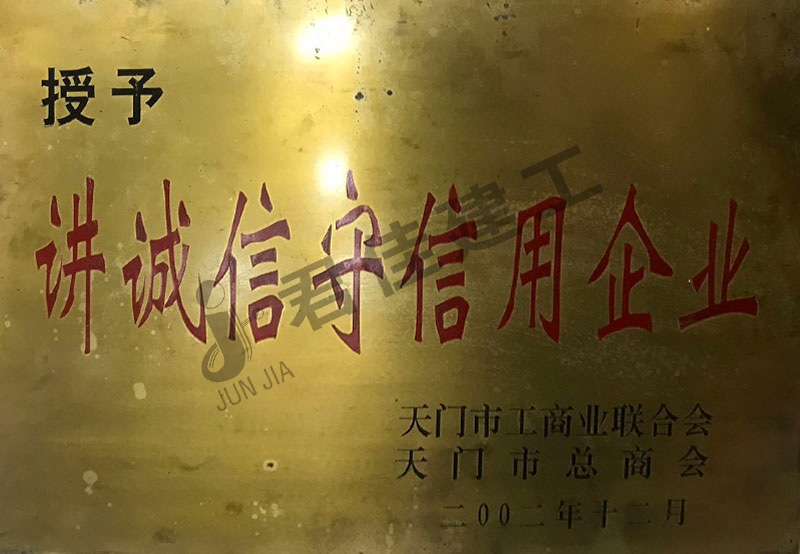 授予
讲诚信守信用企业
君佳建工
JUN JIA
天门市工商业联合会
天门市总商会
二00二年十二月